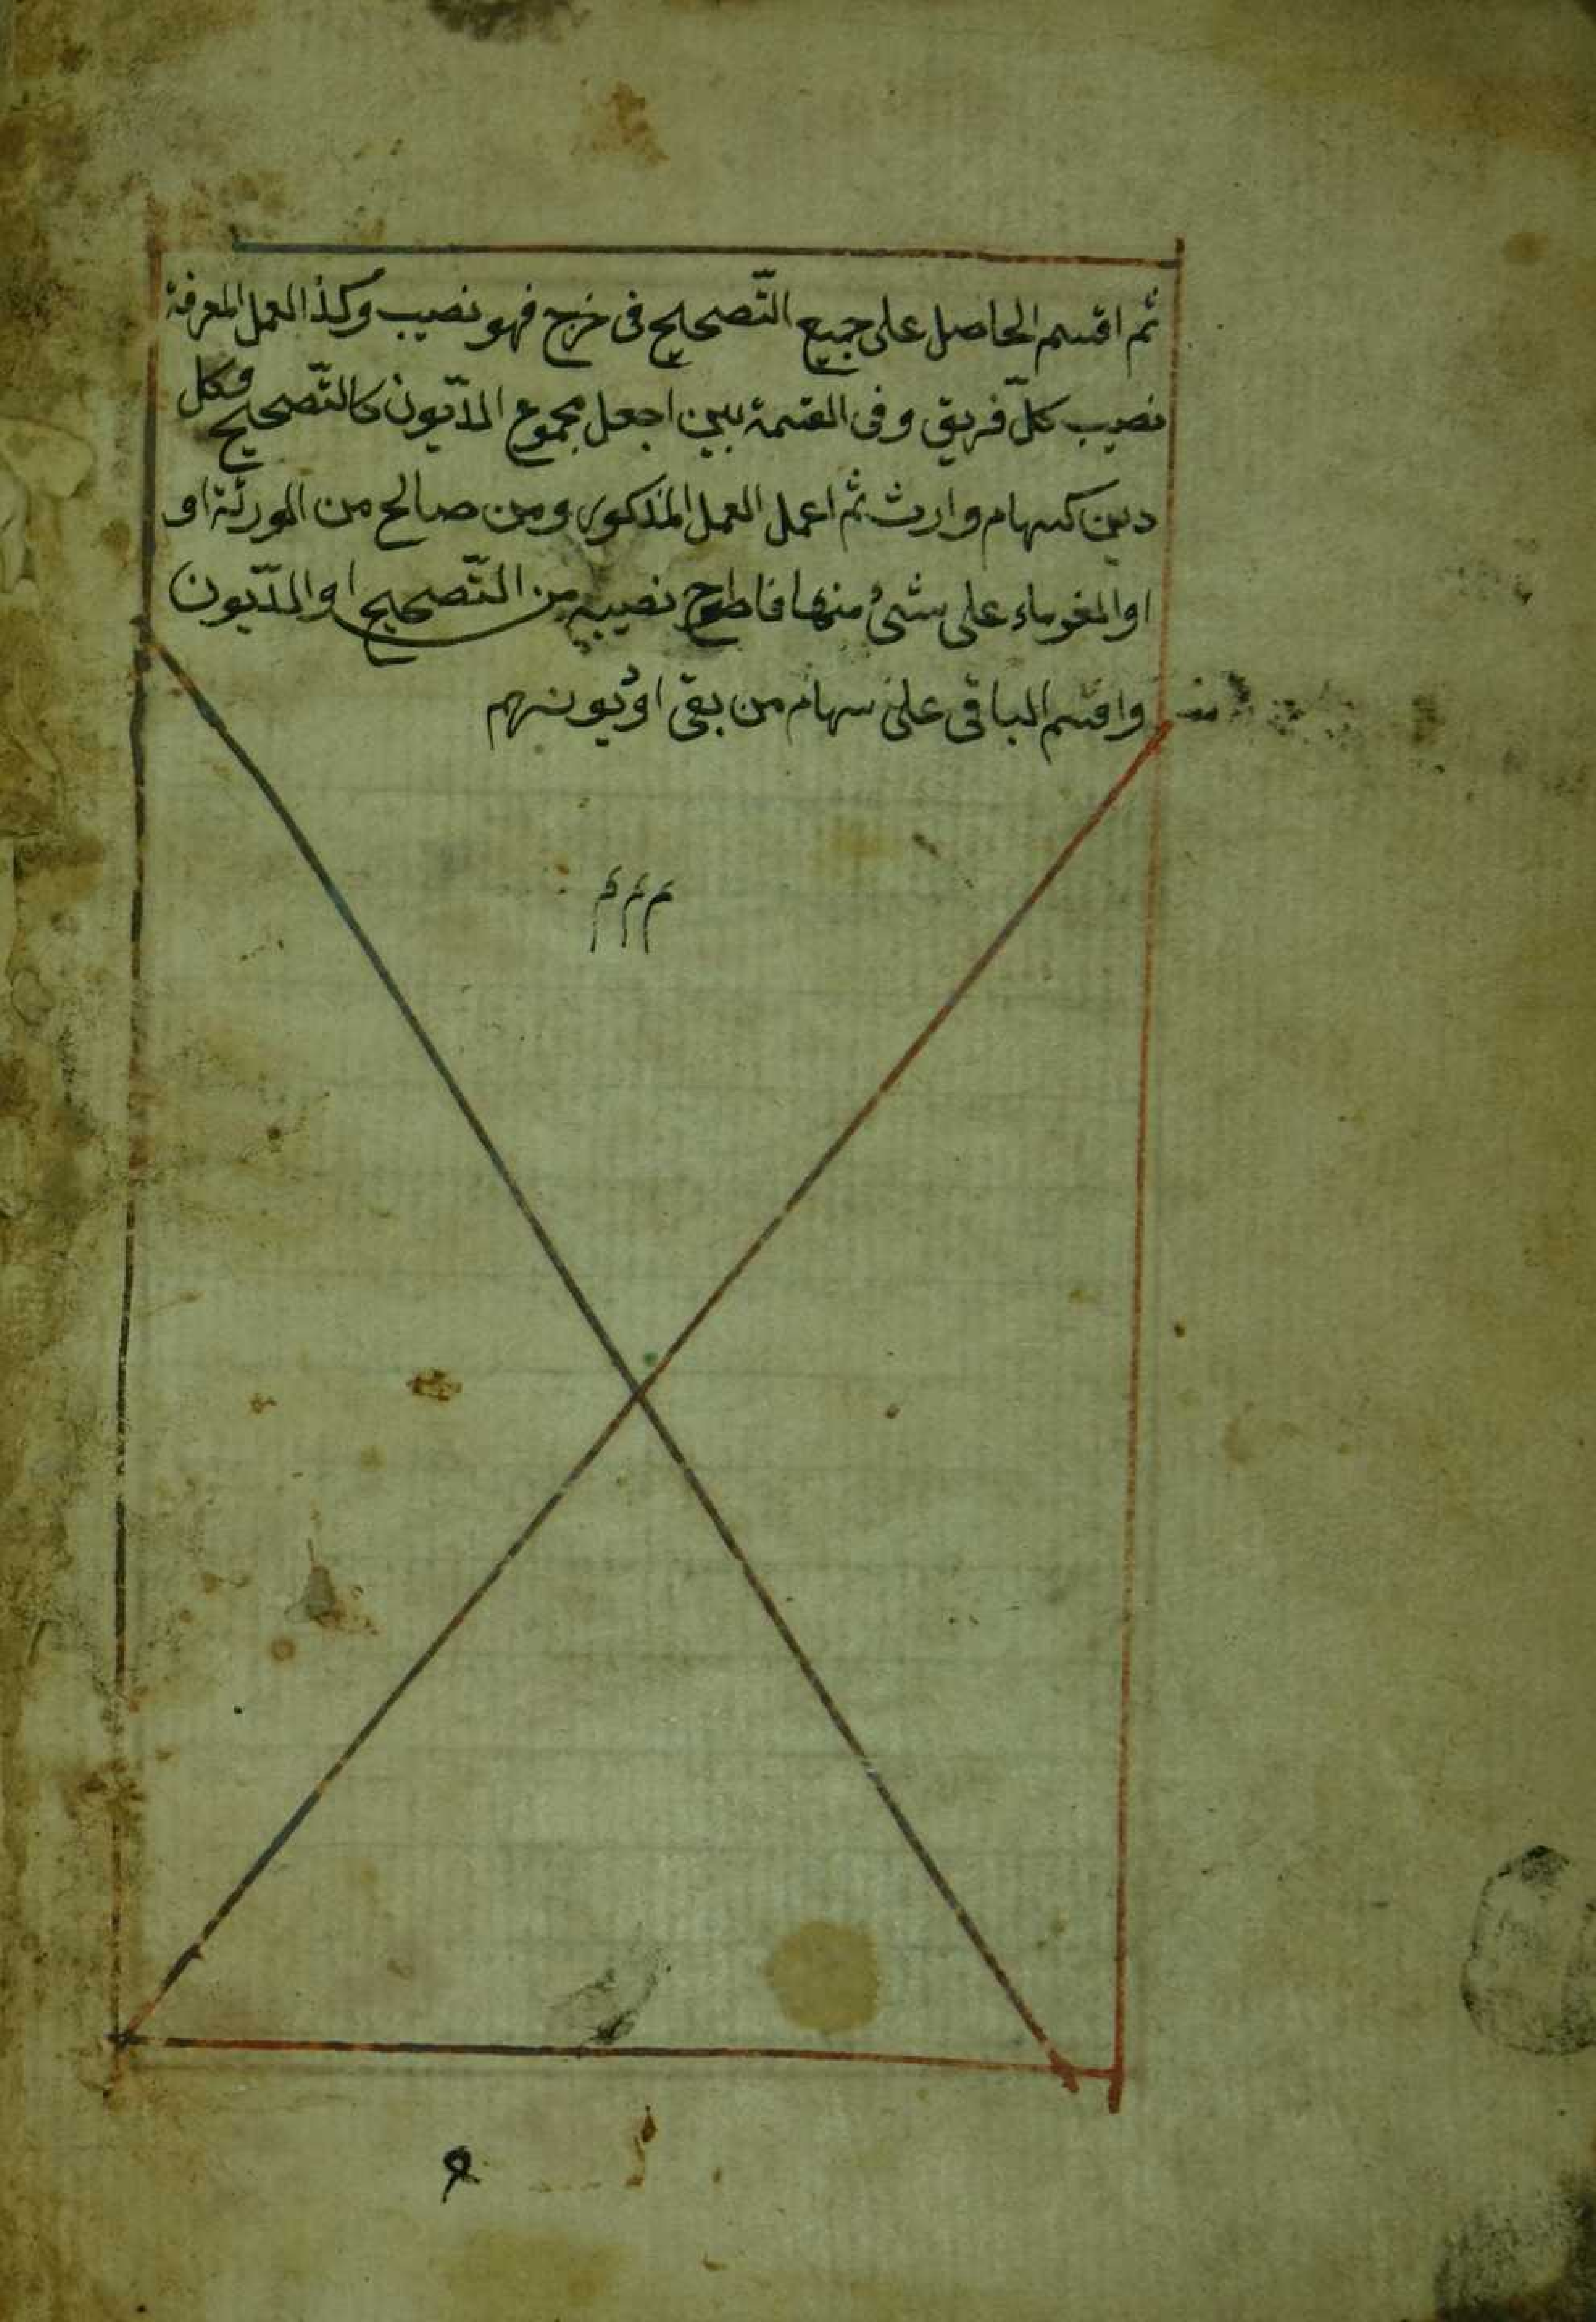 ثم اقسم الحاصل على جميع التّصحيح فى خرج فهو نصيب وكذا العمل لمعرفة
نصيب كلّ فريق وفى القسمة بين اجعل مجموع الدّيون كالتّصحيح وكل
دين كسهام وارث ثم اعمل العمل المذكور ومن صالح من الورثة او
او الغرماء على شئ منها فاطرح نصيبه من التّصحيح او الدّيون
واقسم الباقى على سهام من بقى او ديونهم
م م م